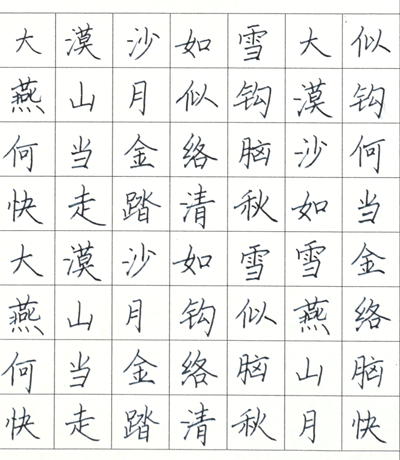 大漠沙如雪大似
燕山月似钩漠钩
何当金络脑沙何
快走踏清秋如当
大漠沙如雪雪金
燕山月钩似燕络
何当金络脑山脑
快走踏清秋月快